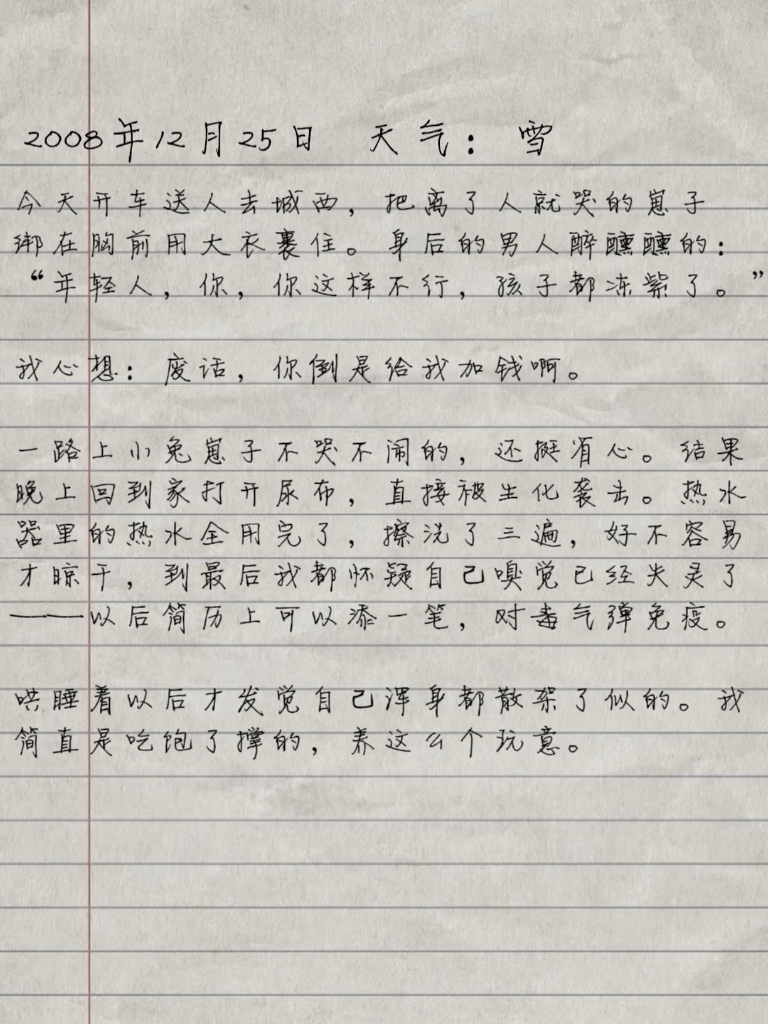 2008年12月25日 天气：雪
今天开车送人去城西，把离了人就哭的崽子
绑在胸前用大衣裹住。身后的男人醉醺醺的：
“年轻人，你，你这样不行，孩子都冻紫了。”
我心想：废话，你倒是给我加钱啊。
一路上小兔崽子不哭不闹的，还挺省心。结果
晚上回到家打开尿布，直接被生化袭击。热水
器里的热水全用完了，擦洗了三遍，好不容易
才晾干，到最后我都怀疑自己嗅觉已经失灵了
——以后简历上可以添一笔，对毒气弹免疫。
哄睡着以后才发觉自己浑身都散架了似的。我
简直是吃饱了撑的，养这么个玩意。